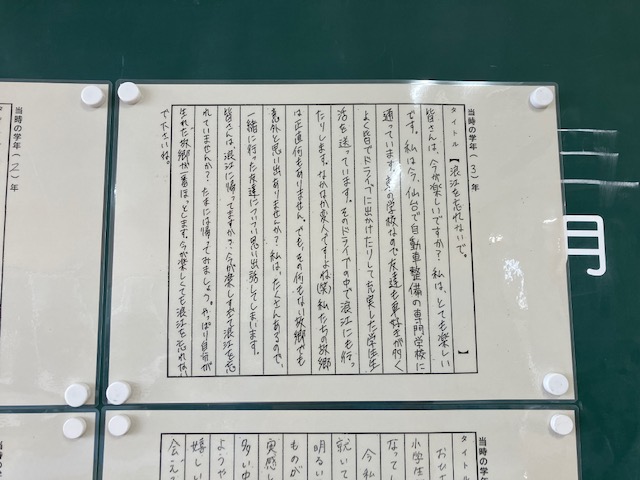 当時の学年(3)年
タイトル【浪江を忘れないで。】
皆さんは、今が楽しいですか? 私は、とても楽しい
です。私は今、仙台で自動車整備の専門学校に
通っています。車の学校なので友達も車好きが多く
よく皆でドライブに出かけたりして充実した学生生
活を送っています。そのドライブの中で浪江にも行っ
たりします。なかなか変人ですよね(笑)私たちの故郷
は正直何もありません。でも、その何もない故郷でも
意外と思い出ありませんか? 私は、たくさんあるので、
一緒に行った友達についつい思い出話してしまいます。
皆さんは、浪江に帰ってますか? 今が楽しすぎて浪江を忘
れていませんか? たまには帰ってみましょう。やっぱり自分が
生れた故郷が一番ほっとします。今が楽しくても浪江を忘れない
で下さいね。
当時の学年(2)年
月
当時の学年
タイトル
小学生
なってし
今私
就いて
明るい
ものが
実感し
多い中
ようや
嬉しい
会え
当時の学年